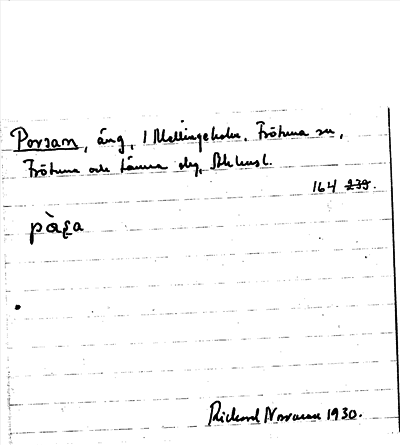 Porsan, äng, 1 Mellingeholm, Frötuna sn,
Frötuna och Länna skg, Sthlmsl.
164 239.
pàʂa
Rickard 1930.